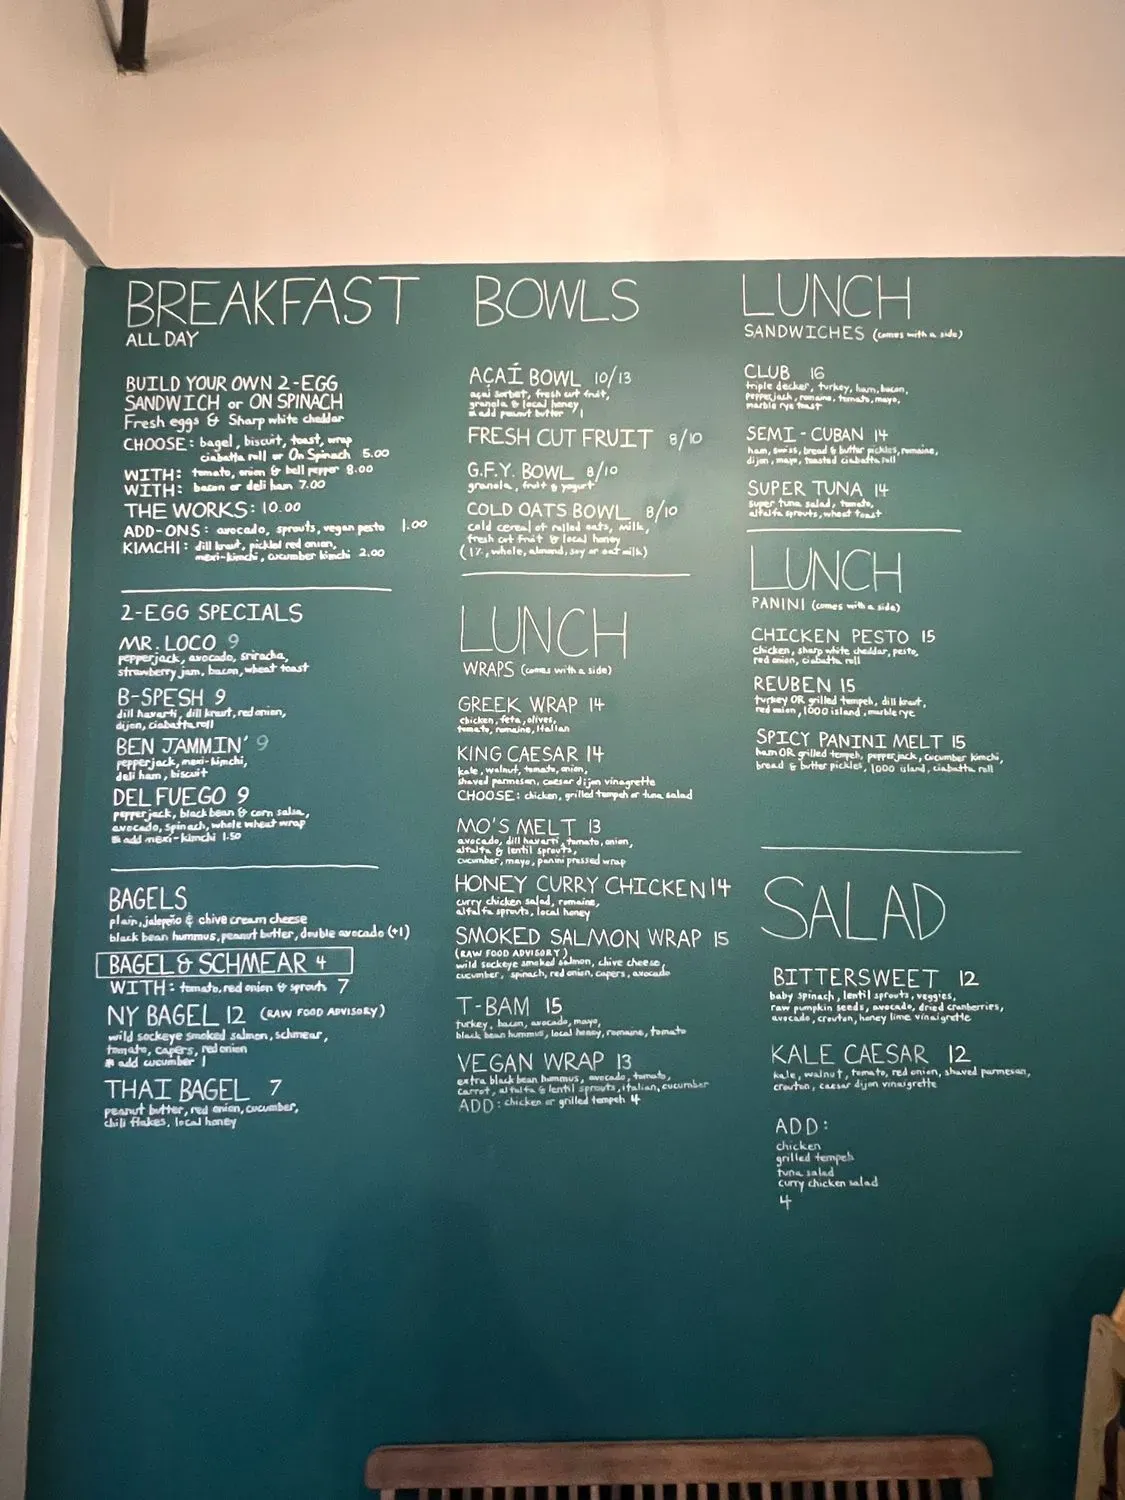 BREAKFAST
ALL DAY
BUILD YOUR OWN 2-EGG
SANDWICH or ON SPINACH
Fresh eggs & Sharp white cheddar
CHOOSE: bagel, biscuit, toast, wrap
ciabatta roll or On Spinach 5.00
WITH: tomato, onion & bell pepper 8.00
WITH: bacon or deli ham 7.00
THE WORKS: 10.00
ADD-ONS: avocado, sprouts, vegan pesto 1.00
KIMCHI: dill kraut, pickled red onion,
mexi-kimchi, cucumber kimchi 2.00
2-EGG SPECIALS
MR. LOCO 9
pepperjack, avocado, sriracha,
strawberry jam, bacon, wheat toast
B-SPESH 9
dill havarti, dill kraut, red onion,
dijon, ciabatta roll
BEN JAMMIN' 9
pepperjack, mexi-kimchi,
deli ham, biscuit
DEL FUEGO 9
pepperjack, black bean & corn salsa,
avocado, spinach, whole wheat wrap
* add mexi-kimchi 1.50
BAGELS
plain, jalepeño & chive cream cheese
black bean hummus, peanut butter, double avocado (+1)
BAGEL & SCHMEAR 4
WITH: tomato, red onion & sprouts 7
NY BAGEL 12 (RAW FOOD ADVISORY)
wild sockeye smoked salmon, schmear,
tomato, capers, red onion
* add cucumber 1
THAI BAGEL 7
peanut butter, red onion, cucumber,
chili flakes, local honey
BOWLS
AÇAÍ BOWL 10/13
açaí sorbet, fresh cut fruit,
granola & local honey
* add peanut butter 1
FRESH CUT FRUIT 8/10
G.F.Y. BOWL 8/10
granola, fruit & yogurt
COLD OATS BOWL 8/10
cold cereal of rolled oats, milk,
fresh cut fruit & local honey
(1%, whole, almond, soy or oat milk)
LUNCH
WRAPS (comes with a side)
GREEK WRAP 14
chicken, feta, olives,
tomato, romaine, Italian
KING CAESAR 14
kale, walnut, tomato, onion,
shaved parmesan, caesar dijon vinaigrette
CHOOSE: chicken, grilled tempeh or tuna salad
MO'S MELT 13
avocado, dill havarti, tomato, onion,
alfalfa & lentil sprouts,
cucumber, mayo, panini pressed wrap
HONEY CURRY CHICKEN 14
curry chicken salad, romaine,
alfalfa sprouts, local honey
SMOKED SALMON WRAP 15
(RAW FOOD ADVISORY)
wild sockeye smoked salmon, chive cheese,
cucumber, spinach, red onion, capers, avocado
T-BAM 15
turkey, bacon, avocado, mayo,
black bean hummus, local honey, romaine, tomato
VEGAN WRAP 13
extra black bean hummus, avocado, tomato,
carrot, alfalfa & lentil sprouts, italian, cucumber
ADD: chicken or grilled tempeh 4
LUNCH
SANDWICHES (comes with a side)
CLUB 16
triple decker, turkey, ham, bacon,
pepperjack, romaine, tomato, mayo,
marble rye toast
SEMI-CUBAN 14
ham, swiss, bread & butter pickles, romaine,
dijon, mayo, toasted ciabatta roll
SUPER TUNA 14
super tuna salad, tomato,
alfalfa sprouts, wheat toast
LUNCH
PANINI (comes with a side)
CHICKEN PESTO 15
chicken, sharp white cheddar, pesto,
red onion, ciabatta roll
REUBEN 15
turkey OR grilled tempeh, dill kraut,
red onion, 1000 island, marble rye
SPICY PANINI MELT 15
ham OR grilled tempeh, pepperjack, cucumber kimchi,
bread & butter pickles, 1000 island, ciabatta roll
SALAD
BITTERSWEET 12
baby spinach, lentil sprouts, veggies,
raw pumpkin seeds, avocado, dried cranberries,
avocado, crouton, honey lime vinaigrette
KALE CAESAR 12
kale, walnut, tomato, red onion, shaved parmesan,
crouton, caesar dijon vinaigrette
ADD:
chicken
grilled tempeh
tuna salad
curry chicken salad
4